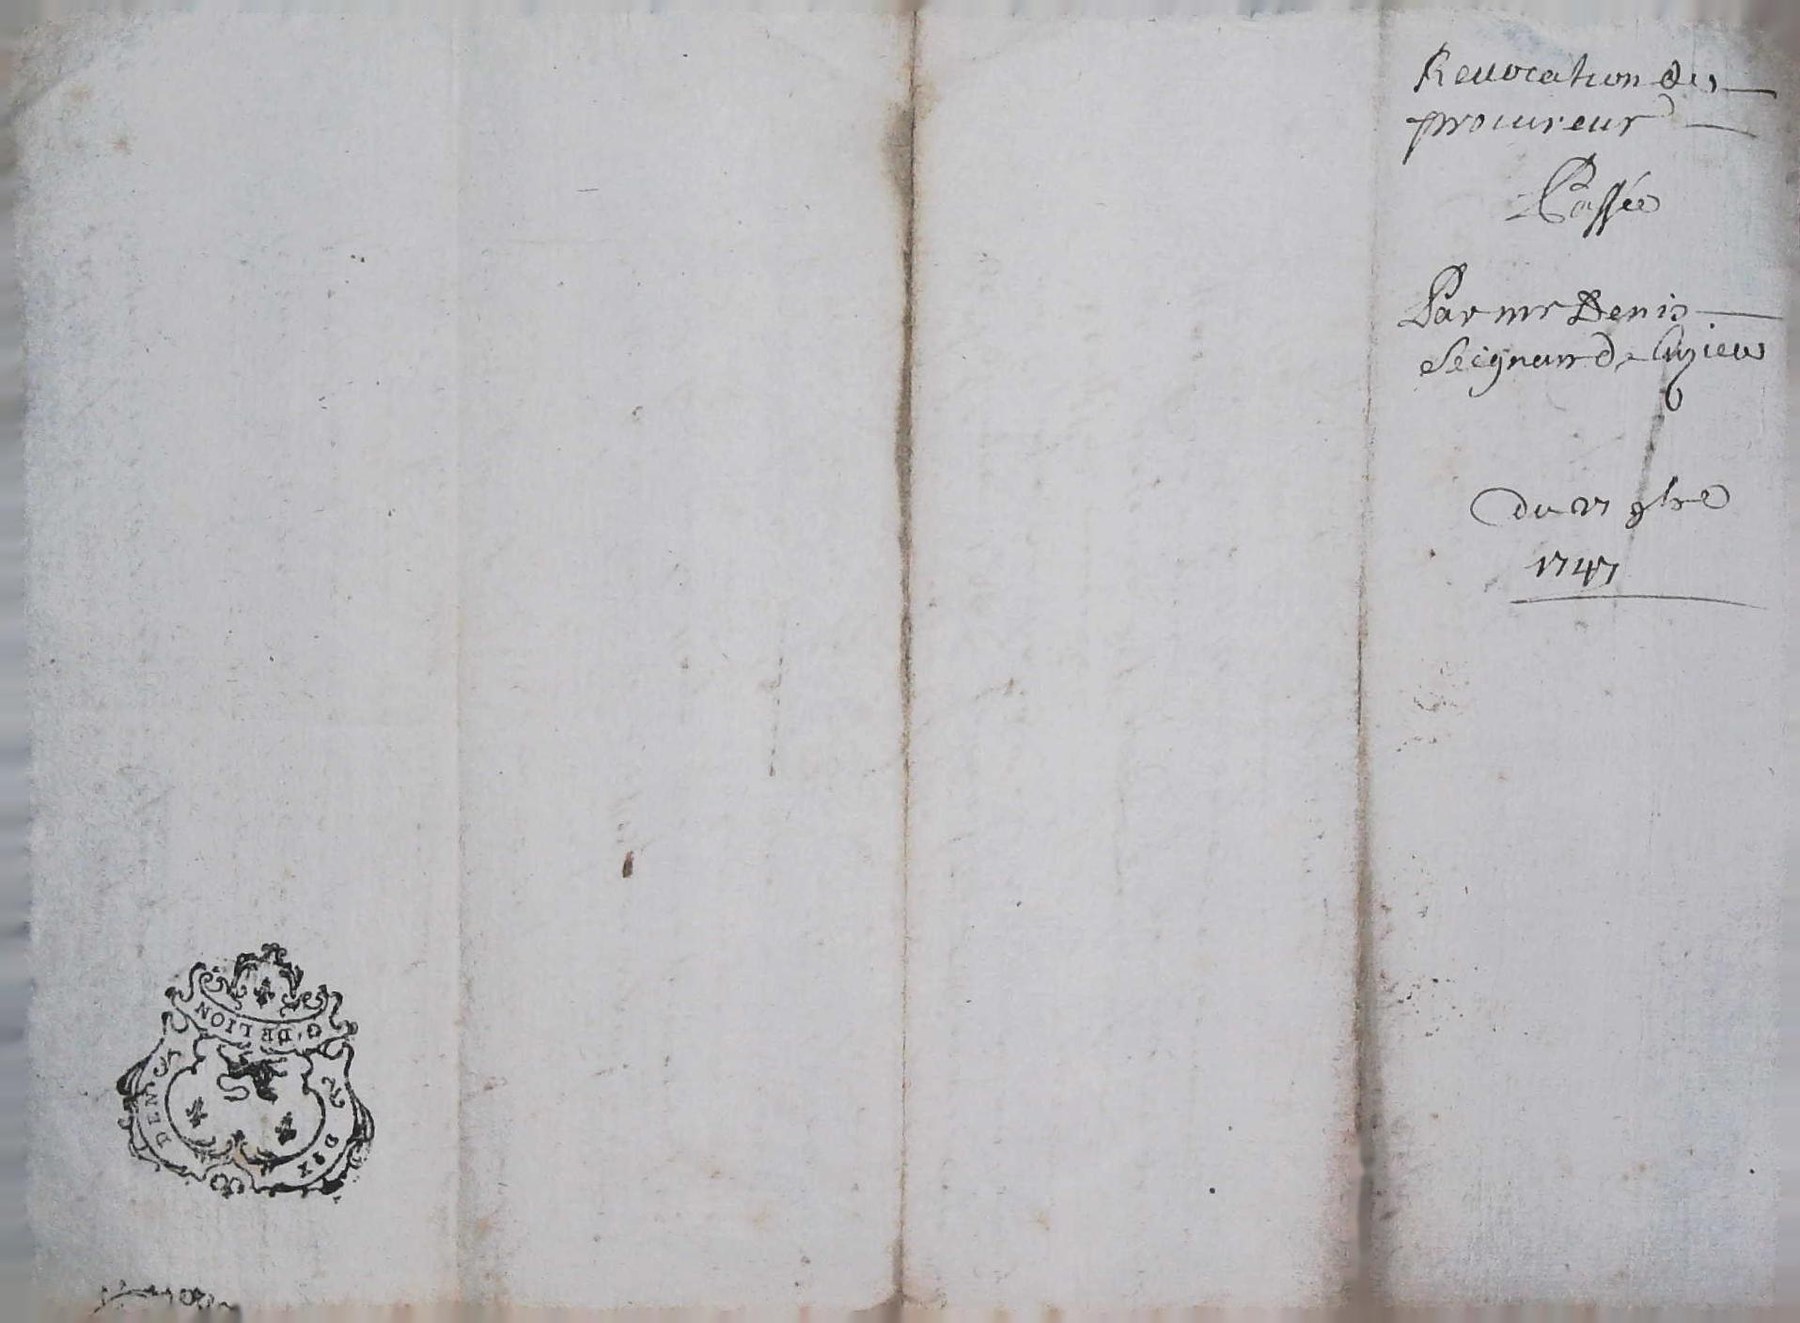 Reuocation de
procureur
Passée
Par mr Denis
Seigneur de Cuzieu
Du 27 9bre
1747
G. DE LION
DEN
SIX